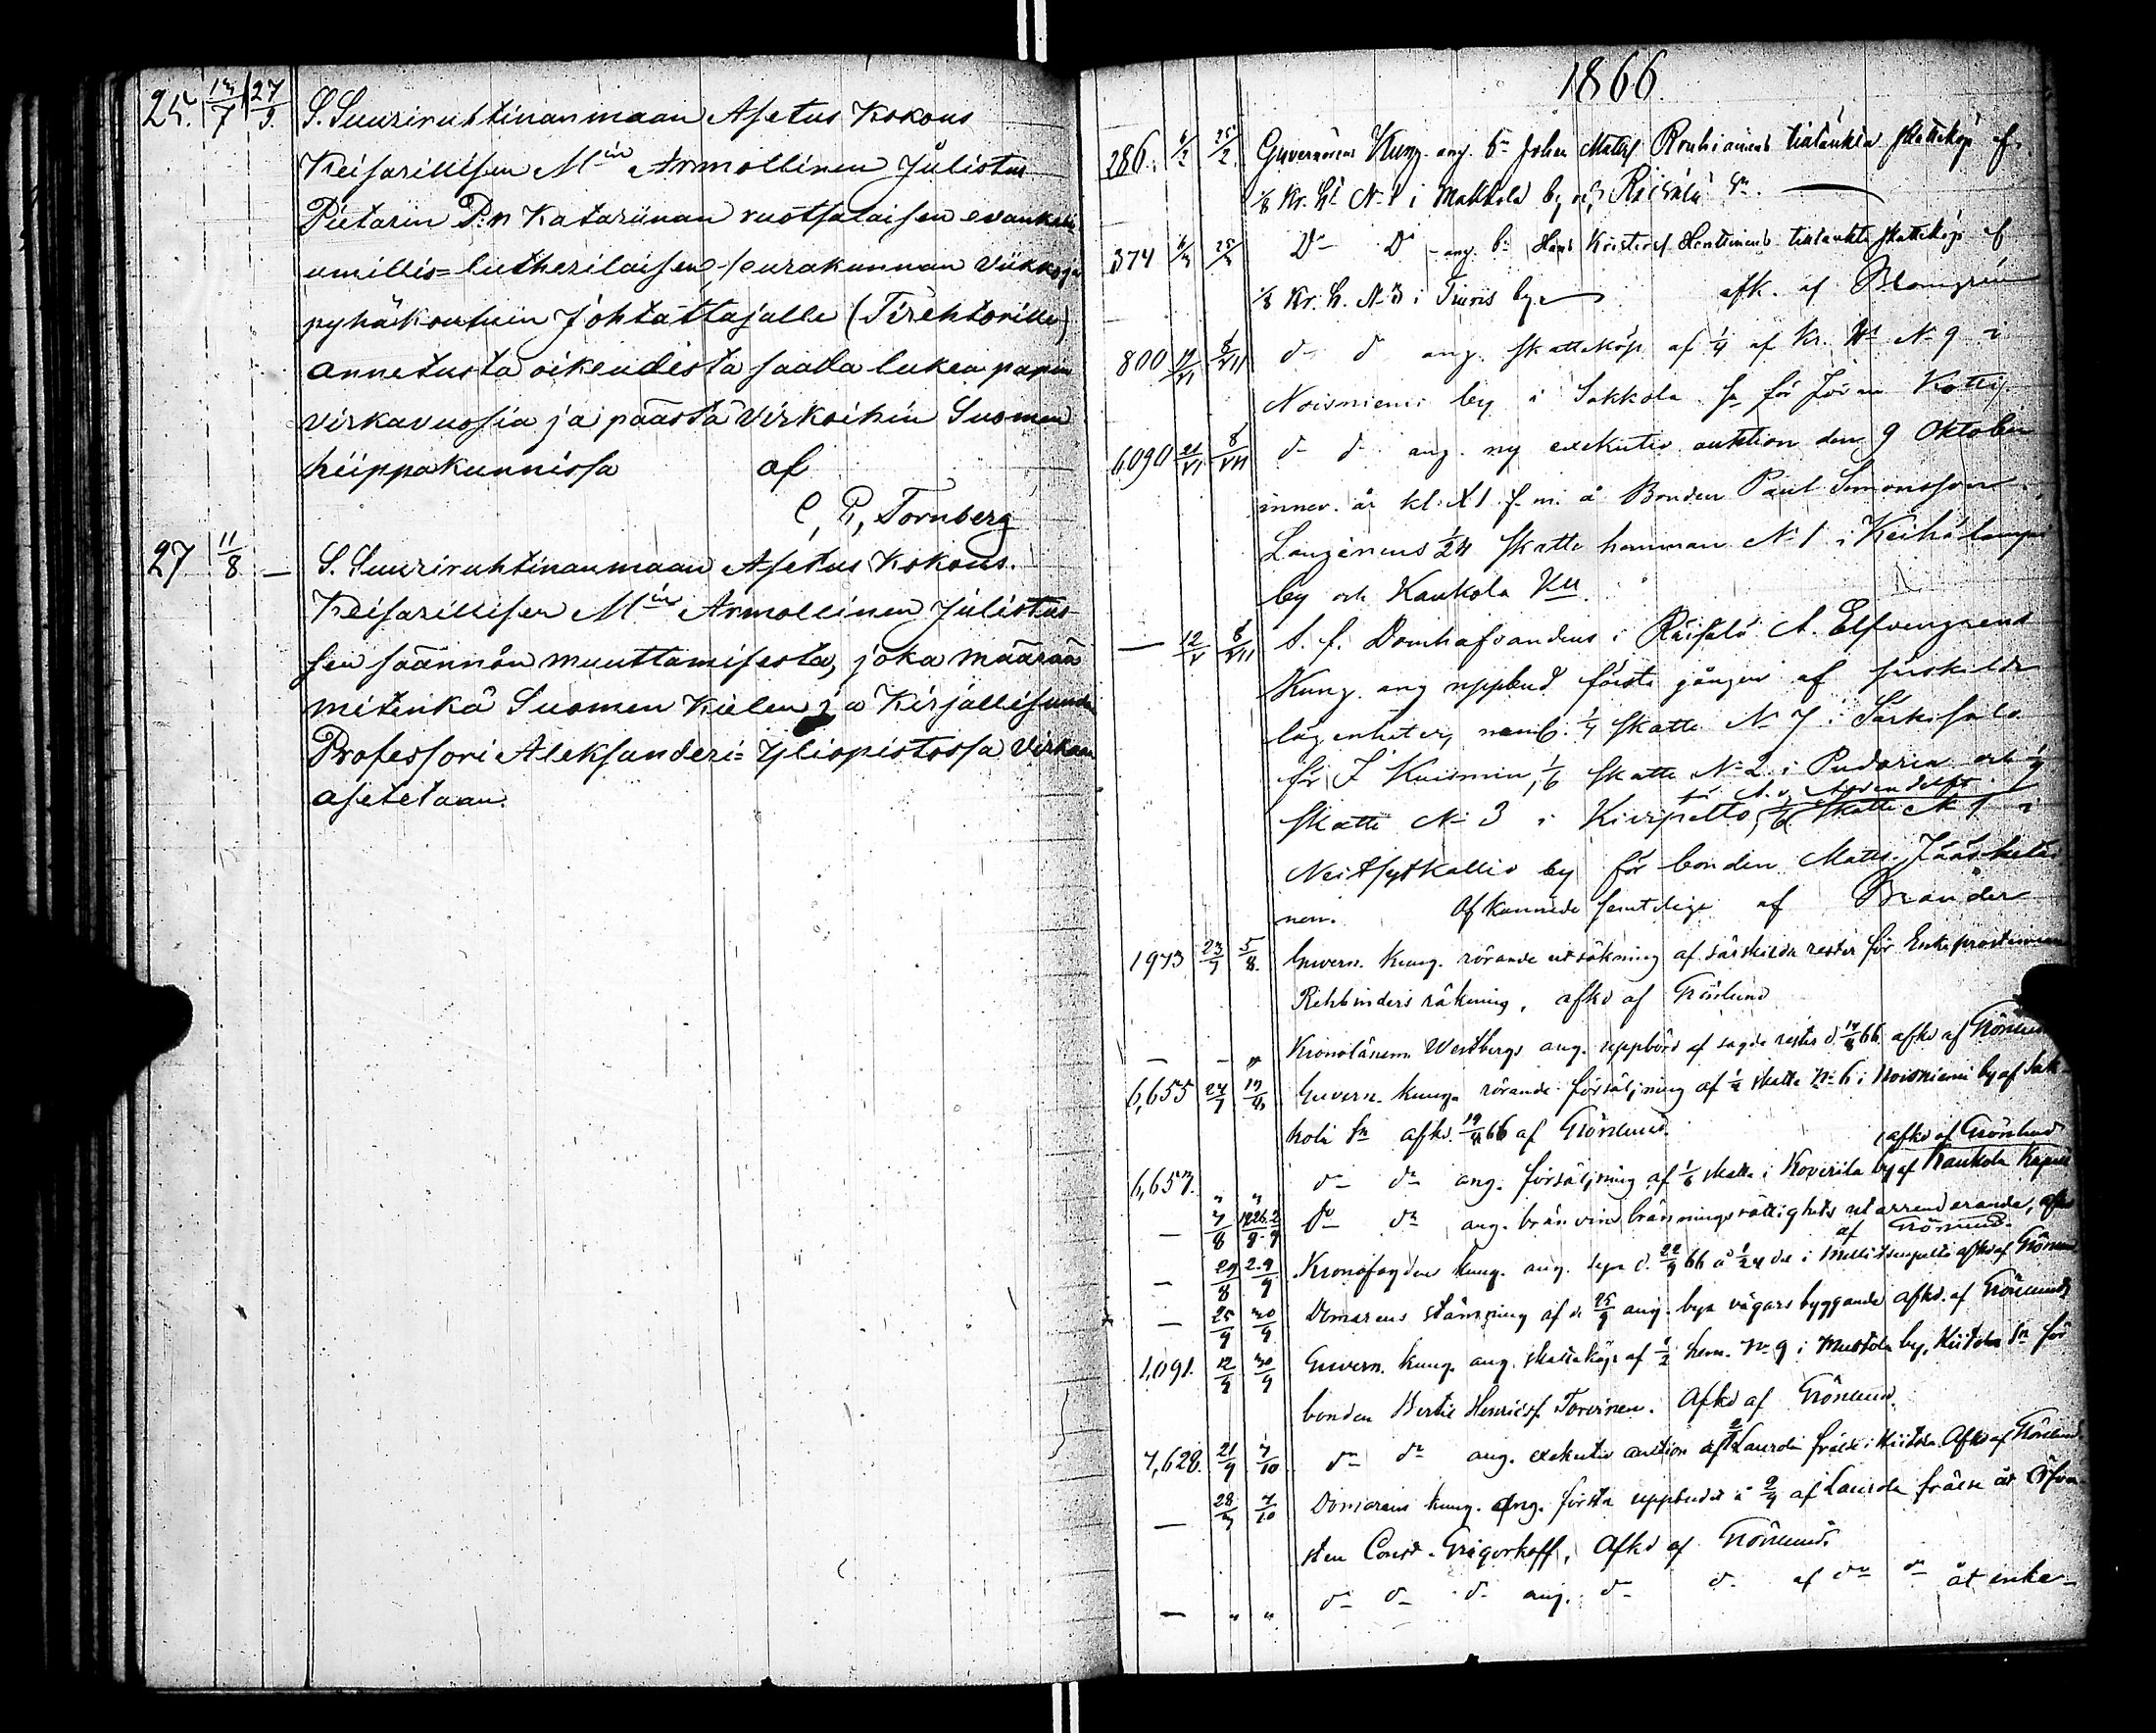 25. 13/7 27/9. S. Suuriruhtinanmaan Asetus Kokous
Keisarillisen M:in Armollinen Julistus
Pietarin P:n Katariinan ruotsalaisen evankeli
umillis=lutherilaisen seurakunnan viikko ja
pyhäkoulun Johtattajalle (Tirehtorille)
annetusta oikeudesta saada lukea papin
virkavuosia ja päästä virkoihin Suomen
hiippakunnissa af
C, G, Tornberg
27 11/8 — S. Suuriruhtinanmaan Asetus Kokous.
Keisarillisen M:in Armollinen Julistus
sen säännön muuttamisesta, joka määrää
mitenkä Suomen Kielen ja Kirjallisuuden
Professori Aleksanderi=Yliopistossa Virkaan
asetetaan.
1866.
286. 6/2 25/2 Guvernörens Kung. ang. b:n Johan Matss Rouhiainens tilltänkta skatteköp af
1/8 Kr. H. N:1 i Makkola by och Räisälä S:n.
374 25/2 D:o D:o ang. b: Hans Kristerss Henttinens tilltänkta skatteköp af
1/8 Kr. H. N:3 i Tiuris by afk. af Blomgren
800 8/VII d:o d:o ang. skatteköp af 1/4 af Kr. H:n N:9 i
Noisniemi by i Sakkola S:n för Jöran Kotti
6,090 21/VI 8/VII d:o d:o ang. ny exekutiv auktion den 9 Oktober
innev. år kl. XI f.m. å Bonden Paul Simonsson
1/24 Skatte hemman N:1 i Keihälampi
by och Kaukola K:ll.
— 12/V 8/VII t. f. Domhafvandens i Räisälä A. Elfvengrens
Kung. ang uppbud första gången af särskilda
lägenheter, neml. 1/4 skatte N:7 i Särkisalo
för J Kuismin, 1/6 skatte N:2 i Pudoria och
för A. v. Arendelft
Skatte N:3 i Kivipelto, 1/6 skatte N:1 i
Neitsytkallio by för bonden Matts Jääskeläi
nen. Afkunnade samtlige af Brander
1973 23/7 5/8. Guvern. kung. rörande utsökning af särskilda rester för Enkeprostinnan
Rehbinders räkning, afkd af Grönlund
— — „ Kronolänsm. Westbergs ang. uppbörd af sagde rester d. 14/8 66. afkd af Grönlund
6,655 24/7 19/8 Guvern. kung. rörande försäljning af 1/2 skatte N:6 i Noisniemi by af Sak-
kola S:n afkd. 19/8 66 af Grönlund.
afkd af Grönlund
6,657. „ „ d:o d:o ang. försäljning af 1/6 skatte i Koverila by af Kaukola Kapell
— 7/8 d:o d:o ang. bränvins bränningsrättighets utarrenderande, afkd
af Grönlund.
— 29/8 2.9/9 Kronofogdens kung. ang. d. 22/9 66 å 1/24 del i afkd af Grönlund
— 25/9 30/9 Domarens stämning af d. 25/9 ang. bya vägars byggande afkd. af Grönlund
1,091. 12/9 30/9 Guvern. kung. ang. skatteköp af 1/2 hem. N:o 9 i Mustola by, Hiitola S:n för
bonden Bertil Henricss. Torvinen. Afkd af Grönlund.
7,628. 21/9 7/10 d:o d:o ang. exekutiv auction af Laurola frälse i Hiitola. Afkd af Grönlund
— 28/9 7/10 Domarens kung. ang. första uppbudet å 2/9 af Laurola frälse åt Öfver
sten Const. Grigorkoff, Afkd af Grönlund.
— „ „ d:o d:o d:o ang. d:o d:o af d:o d:o åt enke-